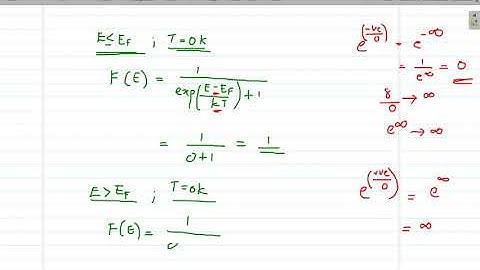 E ≤ E_F ; T=0k
F(E) = 1 / (exp((E-E_F)/kT)+1)
= 1/(0+1) = 1
E > E_F ; T=0k
F(E) = 1/e
e^(-ve/0) = e^-∞
= 1/e^∞ = 0
8/0 → ∞
e^∞ → ∞
e^(+ve/0) = e^∞
= ∞